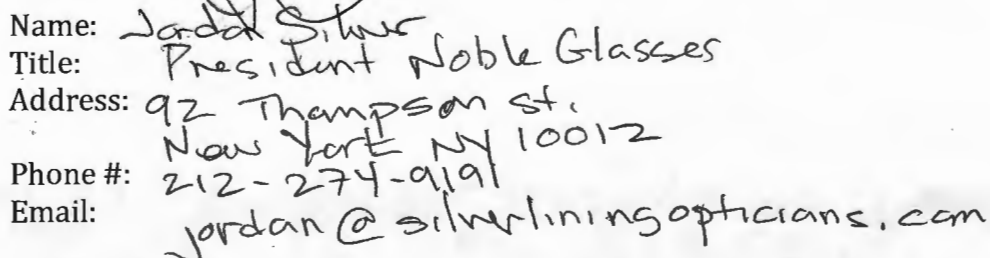 Name: Jordan Silver
Title: President Noble Glasses
Address: 92 Thompson St.
New York NY 10012
Phone #: 212-274-9191
Email:
jordan@silverliningopticians.com